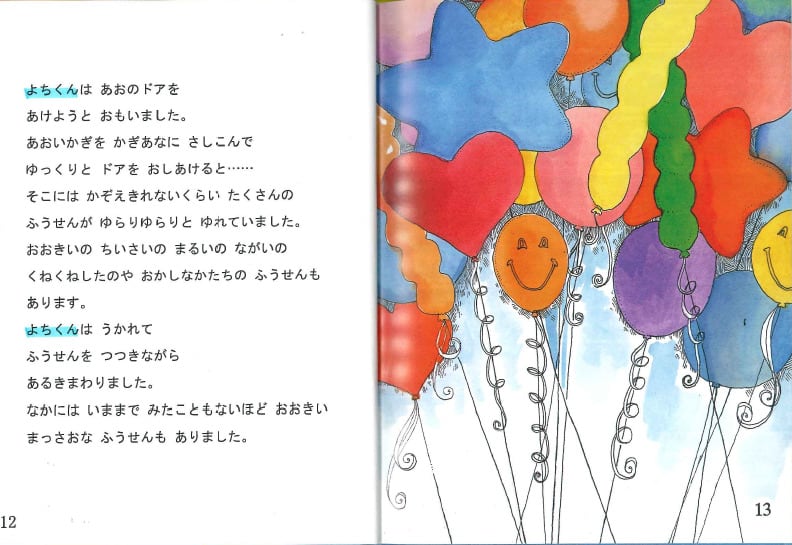 よちくんは あおのドアを
あけようと おもいました。
あおいかぎを かぎあなに さしこんで
ゆっくりと ドアを おしあけると……
そこには かぞえきれないくらい たくさんの
ふうせんが ゆらりゆらりと ゆれていました。
おおきいの ちいさいの まるいの ながいの
くねくねしたのや おかしなかたちの ふうせんも
あります。
よちくんは うかれて
ふうせんを つつきながら
あるきまわりました。
なかには いままで みたこともないほど おおきい
まっさおな ふうせんも ありました。
12
13